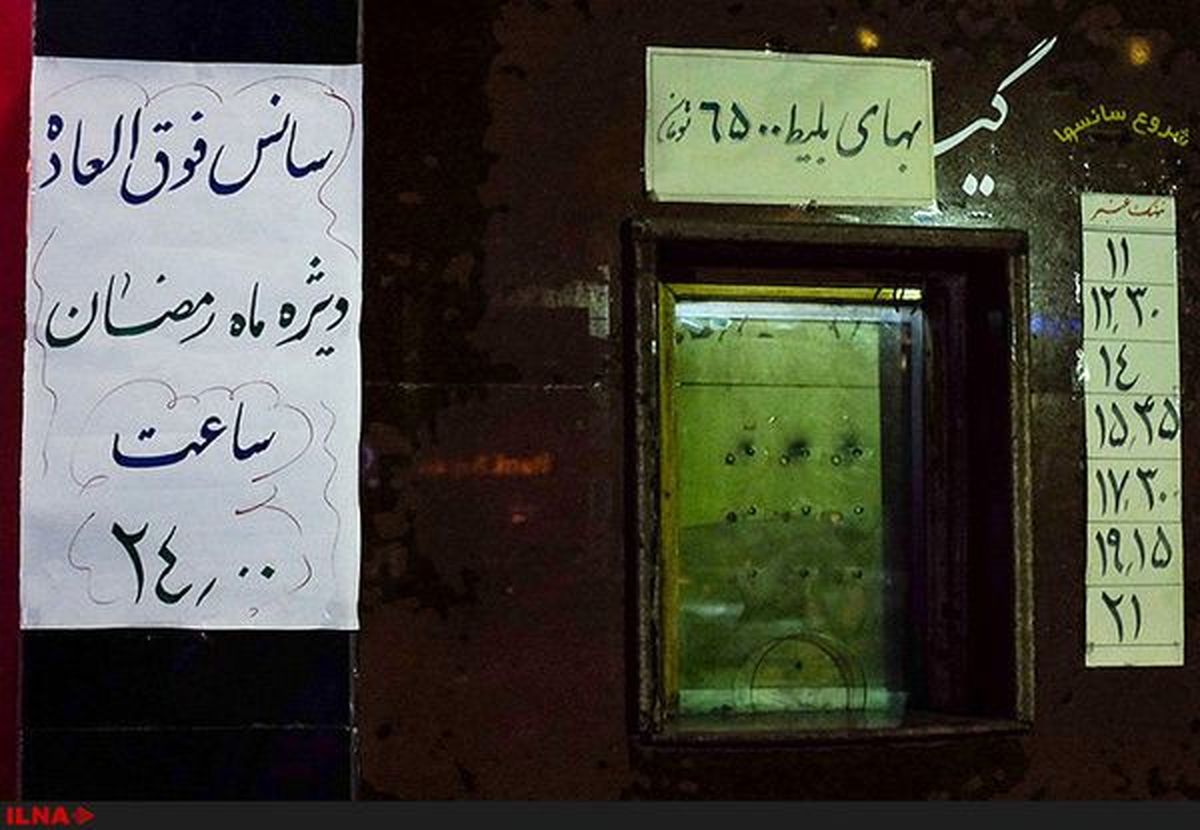 سانس فوق العاده
ویژه ماه رمضان
ساعت
۲٤٫۰۰
بهای بلیط ٦۵۰۰ تومان
شروع سانسها
۱۱
۱۲٫۳۰
۱٤
۱۵٫۴۵
۱۷٫۳۰
۱۹٫۱۵
۲۱
ILNA